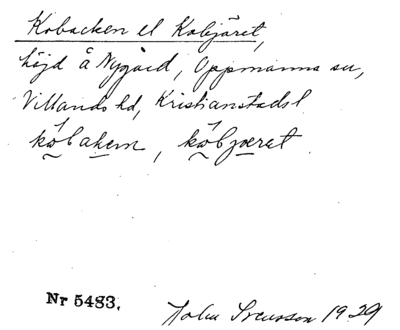 Kobacken el Kobjäret,
höjd å Nygård, Oppmanna sn,
Villands hd, Kristianstads l
Nr 5483.
John Svensson 1929